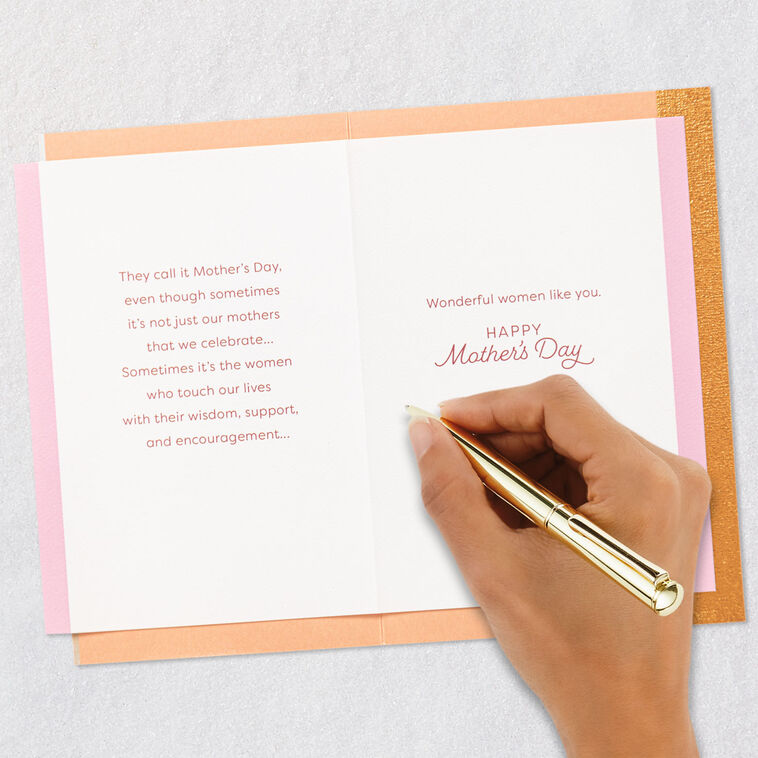 They call it Mother's Day,
even though sometimes
it's not just our mothers
that we celebrate...
Sometimes it's the women
who touch our lives
with their wisdom, support,
and encouragement...
Wonderful women like you.
HAPPY
Mother's Day